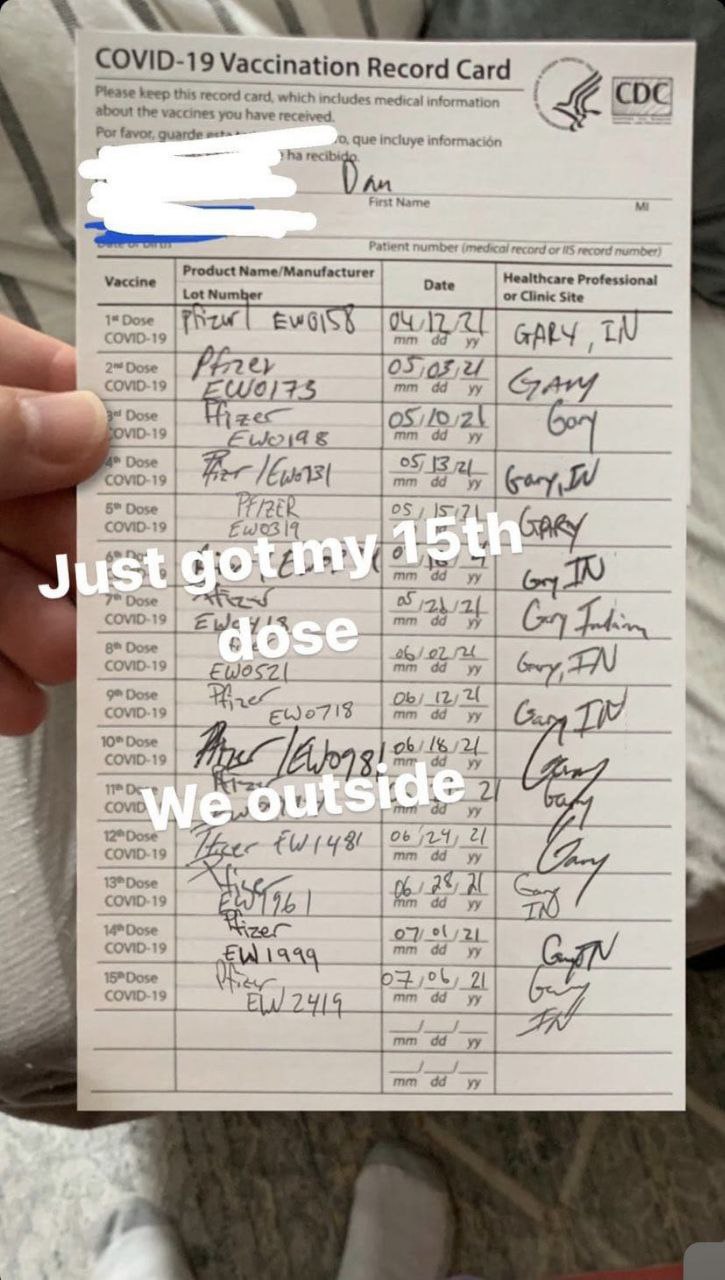 COVID-19 Vaccination Record Card
CDC
Please keep this record card, which includes medical information
about the vaccines you have received.
Por favor, guarde que incluye información
ha recibido.
Dan
First Name
MI
Patient number (medical record or IIS record number)
Vaccine
Product Name/Manufacturer
Lot Number
Date
Healthcare Professional
or Clinic Site
1st Dose
COVID-19
Pfizer EW0158
04/12/21
mm dd yy
GARY, IN
2nd Dose
COVID-19
Pfizer
EW0173
05/03/21
mm dd yy
GARY
3rd Dose
COVID-19
Pfizer
EW0198
05/10/21
mm dd yy
Gary
4th Dose
COVID-19
Pfizer/EW0231
05/13/21
mm dd yy
Gary, IN
5th Dose
COVID-19
PFIZER
EW0319
05/15/21
GARY
Just got my 15th
dose
COVID-19
mm dd yy
Gary IN
7th Dose
COVID-19
Pfizer
05/26/21
mm dd yy
Gary Indiana
8th Dose
COVID-19
EW0521
06/02/21
mm dd yy
Gary, IN
9th Dose
COVID-19
Pfizer
EW0718
06/12/21
mm dd yy
Gary IN
10th Dose
COVID-19
Pfizer/EW0981
06/18/21
mm dd yy
Gary
We outside
21
mm dd yy
Gary
12th Dose
COVID-19
Pfizer EW1481
06/24/21
mm dd yy
Gary
13th Dose
COVID-19
Pfizer
EW1961
06/28/21
mm dd yy
Gary
IN
14th Dose
COVID-19
Pfizer
EW1999
07/01/21
mm dd yy
Gary IN
15th Dose
COVID-19
Pfizer
EW2419
07/06/21
mm dd yy
Gary
IN
mm dd yy
mm dd yy